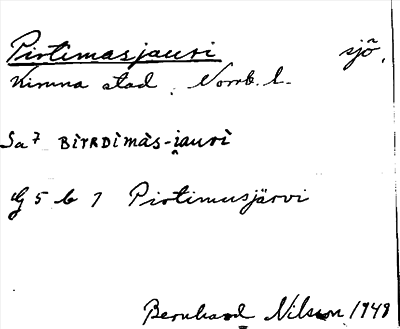 Pirtimasjauri sjö,
Kiruna stad. Norrb. l.
Sa7 BÌYRDÌMÀS-i̯auri
G 5 b 7 Pirtimusjärvi
Bernhard Nilsson 1948